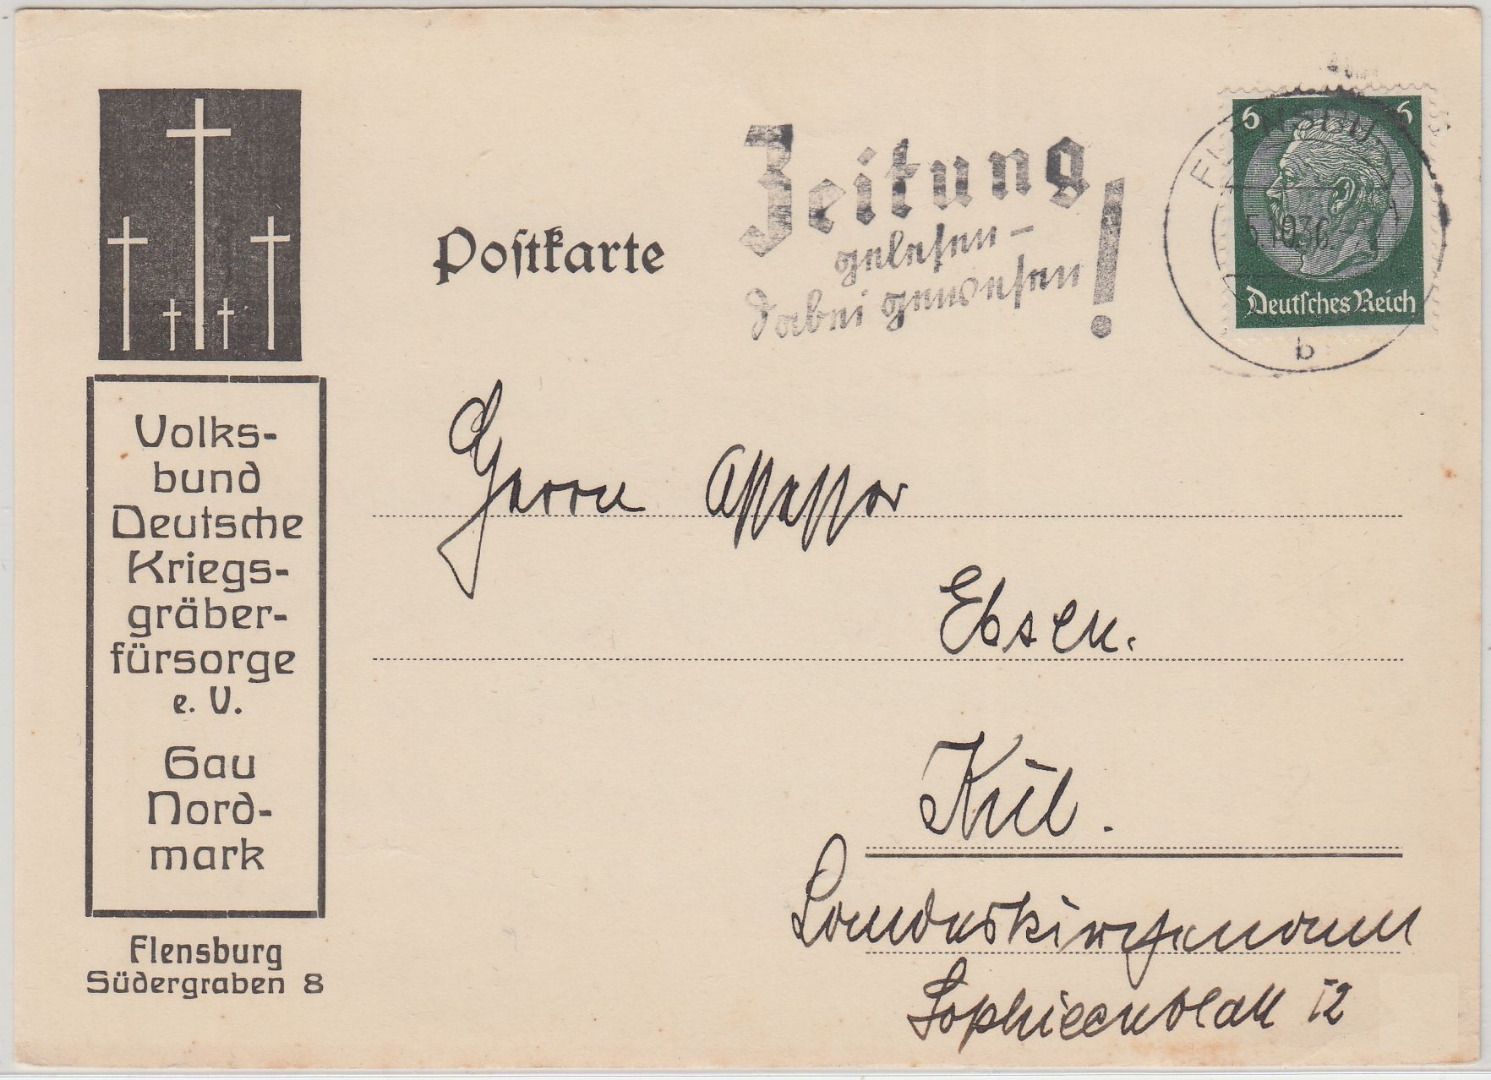 Volks-
bund
Deutsche
Kriegs-
gräber-
fürsorge
e. V.
Gau
Nord-
mark
Flensburg
Südergraben 8
Postkarte
Zeitung
gelesen –
dabei gewesen!
6 6
Deutsches Reich
1936
b
Herrn Assessor
Ebsen.
Kiel.
Landeskirchenamt
Sophienblatt 12